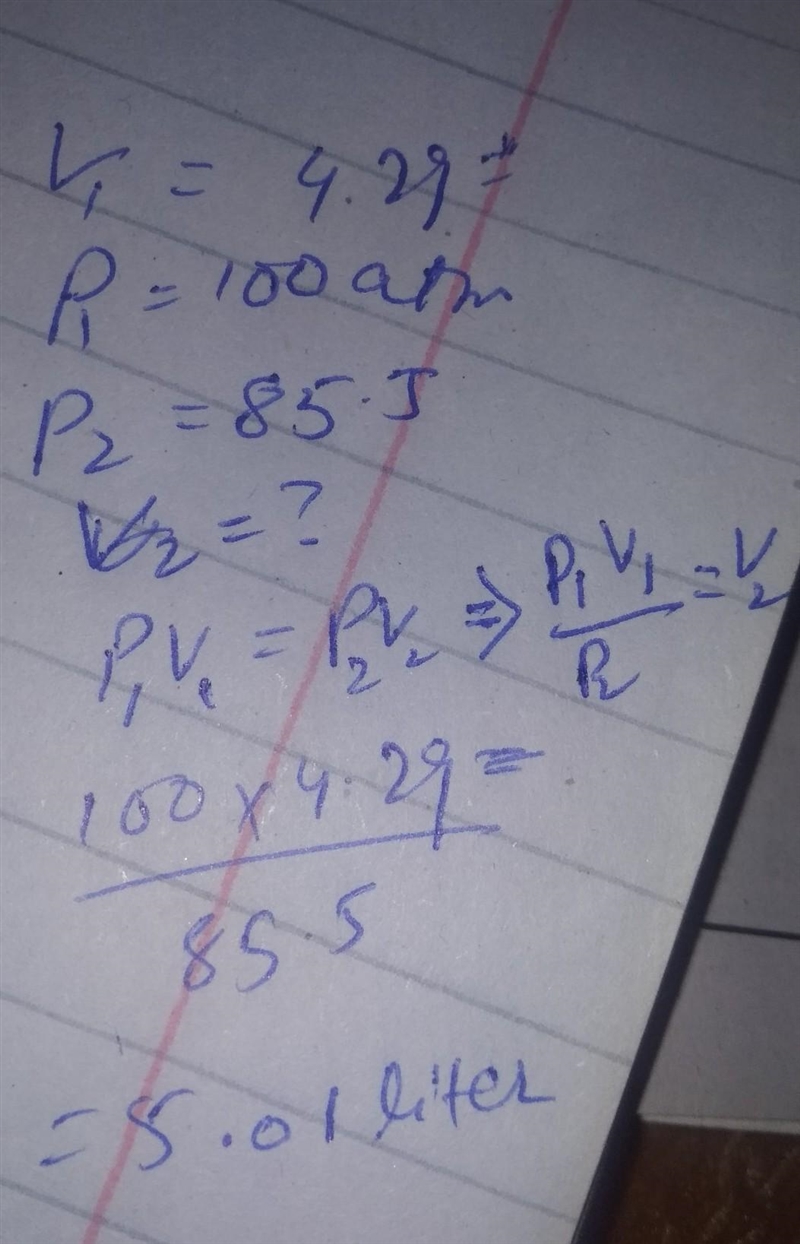 V₁ = 4.29 =
P₁ = 100 atm
P₂ = 85.5
V₂ = ?
P₁V₁ = P₂V₂ ⇒ P₁V₁/P₂ = V₂
100 x 4.29 =
85.5
= 5.01 liter